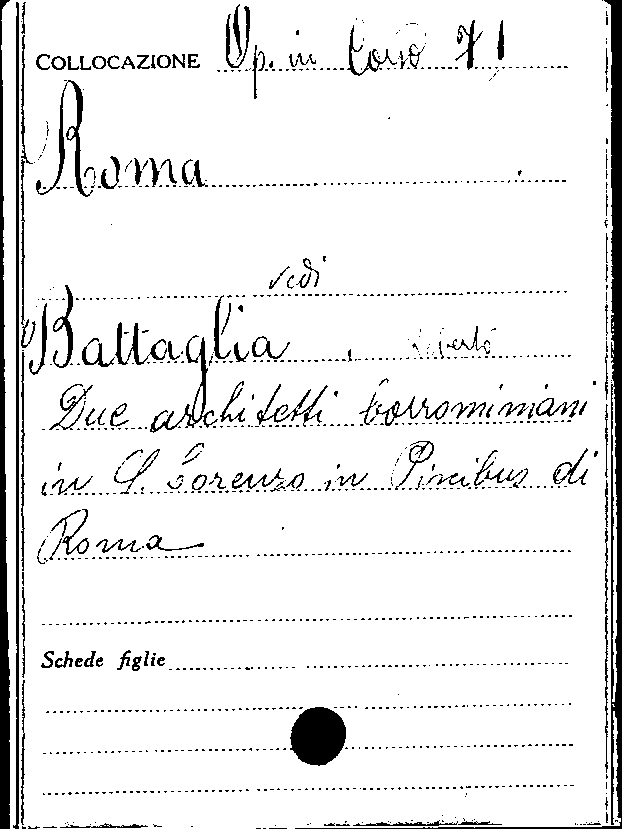 COLLOCAZIONE Op. in Corso 71
Roma
vedi
Battaglia
Due architetti borrominiani
in S. Lorenzo in Piscibus di
Roma
Schede figlie